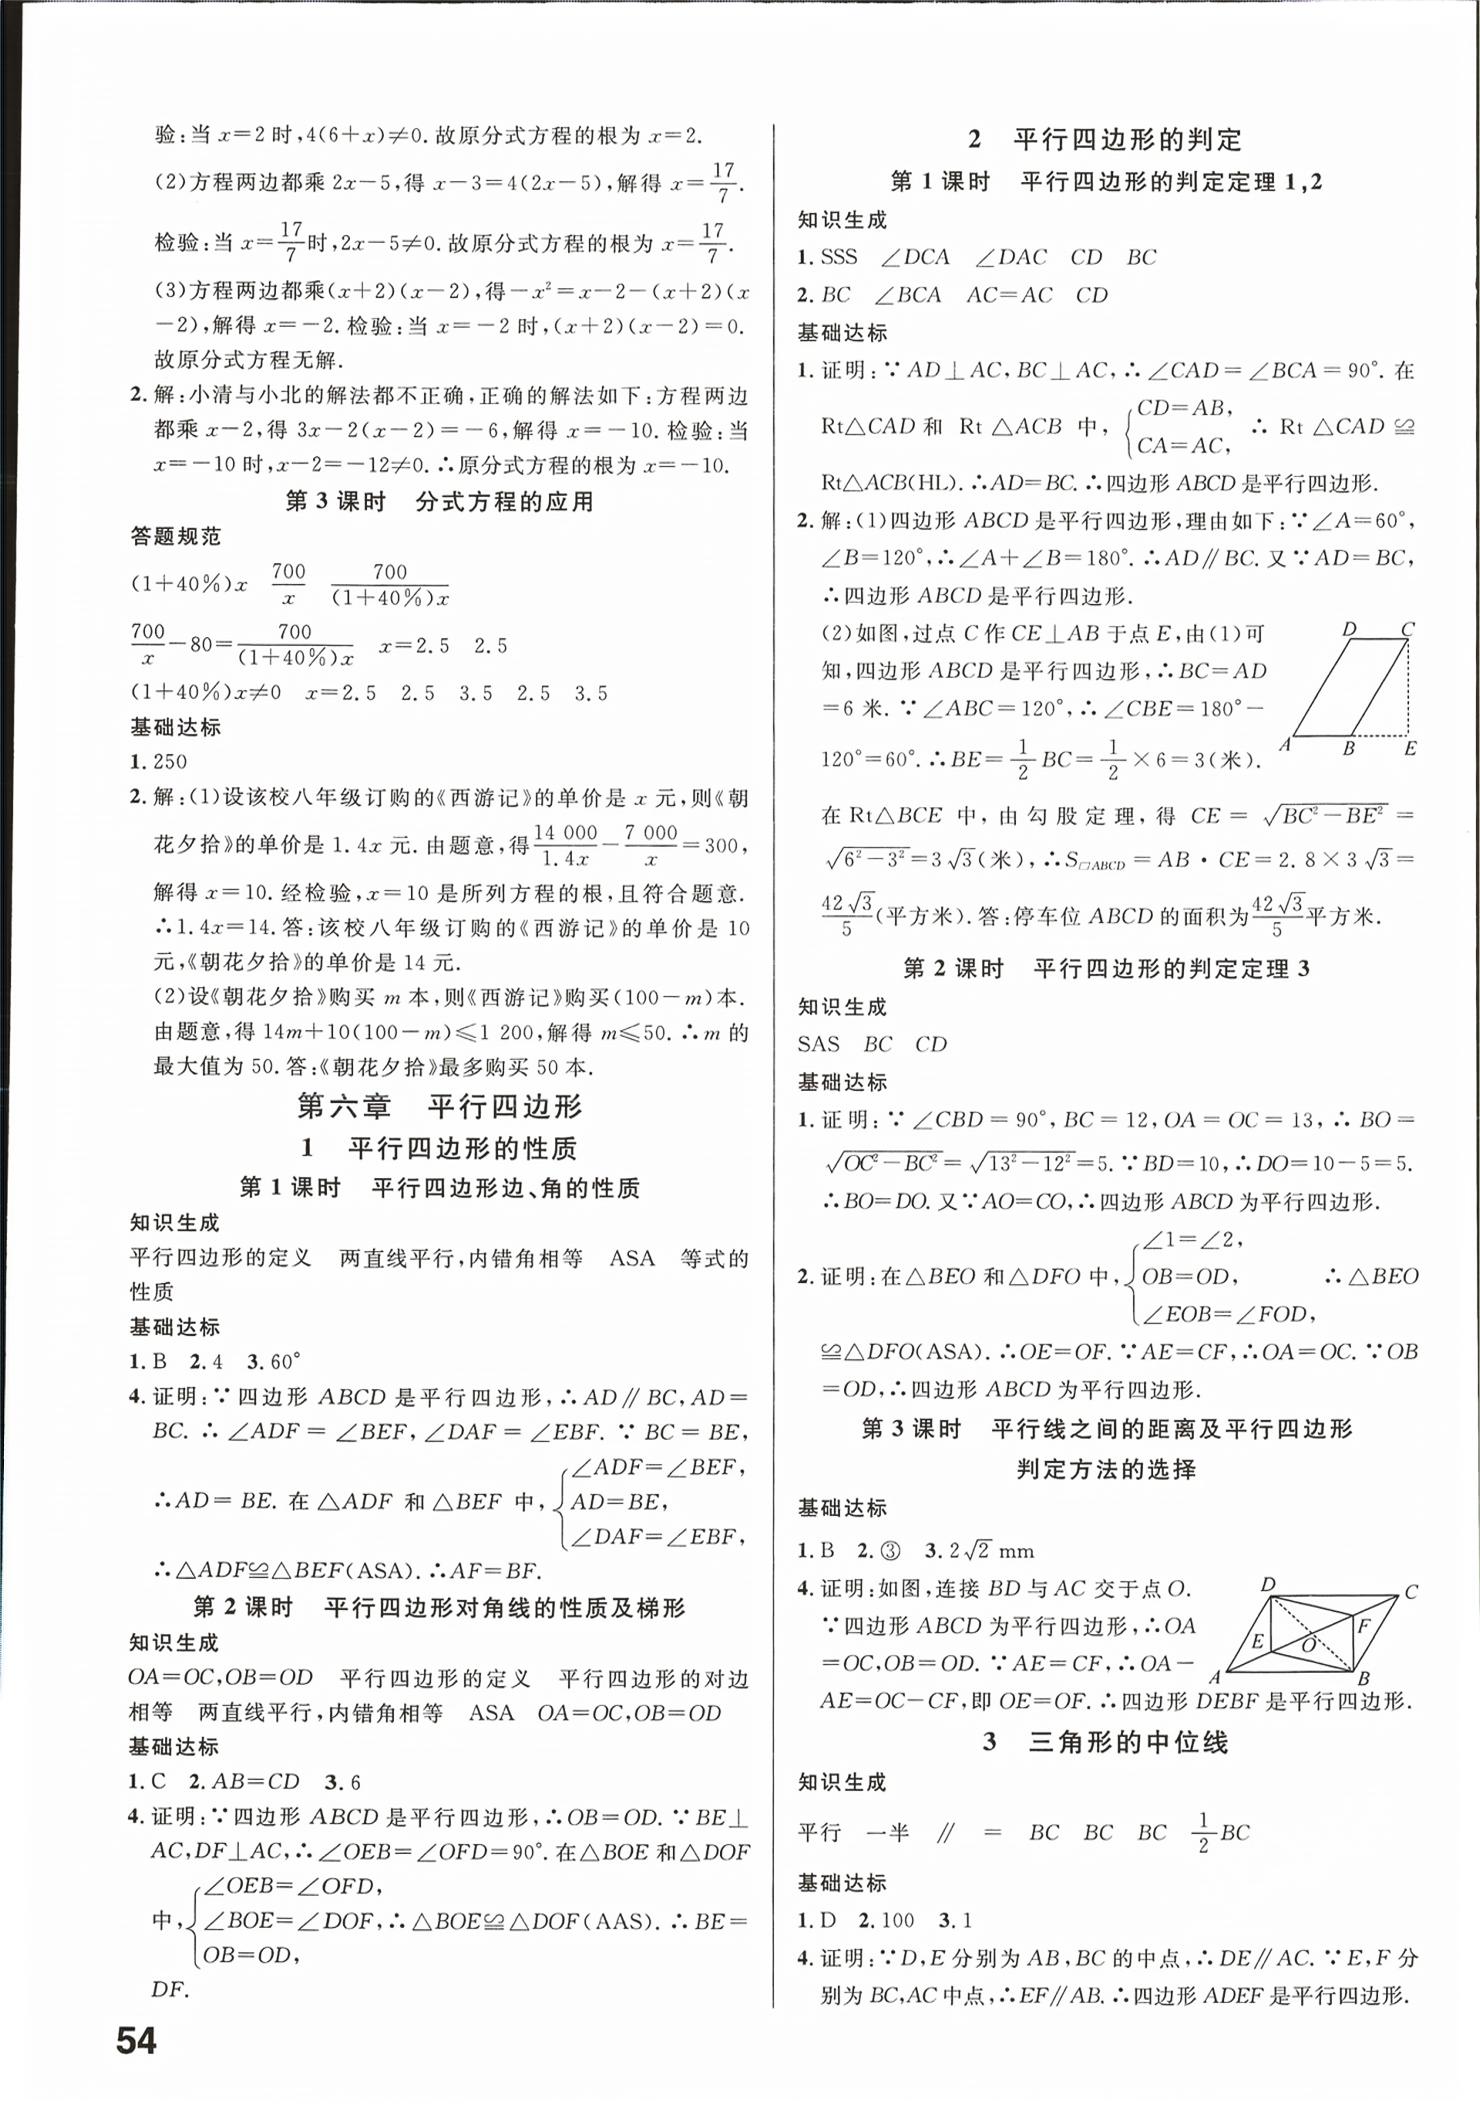 验:当 x=2 时,4(6+x)≠0.故原分式方程的根为 x=2.
(2)方程两边都乘 2x-5,得 x-3=4(2x-5),解得 x=17/7.
检验:当 x=17/7时,2x-5≠0.故原分式方程的根为 x=17/7.
(3)方程两边都乘(x+2)(x-2),得-x²=x-2-(x+2)(x
-2),解得 x=-2.检验:当 x=-2 时,(x+2)(x-2)=0.
故原分式方程无解.
2.解:小清与小北的解法都不正确,正确的解法如下:方程两边
都乘 x-2,得 3x-2(x-2)=-6,解得 x=-10.检验:当
x=-10 时,x-2=-12≠0.∴原分式方程的根为 x=-10.
第 3 课时 分式方程的应用
答题规范
(1+40%)x 700/x 700/(1+40%)x
700/x-80=700/(1+40%)x x=2.5 2.5
(1+40%)x≠0 x=2.5 2.5 3.5 2.5 3.5
基础达标
1.250
2.解:(1)设该校八年级订购的《西游记》的单价是 x 元,则《朝
花夕拾》的单价是 1.4x 元.由题意,得14 000/1.4x-7 000/x=300,
解得 x=10.经检验,x=10 是所列方程的根,且符合题意.
∴1.4x=14.答:该校八年级订购的《西游记》的单价是 10
元,《朝花夕拾》的单价是 14 元.
(2)设《朝花夕拾》购买 m 本,则《西游记》购买(100-m)本.
由题意,得 14m+10(100-m)≤1 200,解得 m≤50.∴m 的
最大值为 50.答:《朝花夕拾》最多购买 50 本.
第六章 平行四边形
1 平行四边形的性质
第 1 课时 平行四边形边、角的性质
知识生成
平行四边形的定义 两直线平行,内错角相等 ASA 等式的
性质
基础达标
1.B 2.4 3.60°
4.证明:∵四边形 ABCD 是平行四边形,∴AD∥BC,AD=
BC.∴∠ADF=∠BEF,∠DAF=∠EBF.∵BC=BE,
∠ADF=∠BEF,
∴AD=BE.在△ADF 和△BEF 中,{AD=BE,
∠DAF=∠EBF,
∴△ADF≌△BEF(ASA).∴AF=BF.
第 2 课时 平行四边形对角线的性质及梯形
知识生成
OA=OC,OB=OD 平行四边形的定义 平行四边形的对边
相等 两直线平行,内错角相等 ASA OA=OC,OB=OD
基础达标
1.C 2.AB=CD 3.6
4.证明:∵四边形 ABCD 是平行四边形,∴OB=OD.∵BE⊥
AC,DF⊥AC,∴∠OEB=∠OFD=90°.在△BOE 和△DOF
∠OEB=∠OFD,
中,{∠BOE=∠DOF,∴△BOE≌△DOF(AAS).∴BE=
OB=OD,
DF.
54
2 平行四边形的判定
第 1 课时 平行四边形的判定定理 1,2
知识生成
1.SSS ∠DCA ∠DAC CD BC
2.BC ∠BCA AC=AC CD
基础达标
1.证明:∵AD⊥AC,BC⊥AC,∴∠CAD=∠BCA=90°.在
CD=AB,
Rt△CAD 和 Rt△ACB 中,{ ∴Rt△CAD≌
CA=AC,
Rt△ACB(HL).∴AD=BC.∴四边形 ABCD 是平行四边形.
2.解:(1)四边形 ABCD 是平行四边形,理由如下:∵∠A=60°,
∠B=120°,∴∠A+∠B=180°.∴AD∥BC.又∵AD=BC,
∴四边形 ABCD 是平行四边形.
(2)如图,过点 C 作 CE⊥AB 于点 E,由(1)可
知,四边形 ABCD 是平行四边形,∴BC=AD
=6 米.∵∠ABC=120°,∴∠CBE=180°-
120°=60°.∴BE=1/2 BC=1/2×6=3(米).
D C
A B E
在 Rt△BCE 中,由勾股定理,得 CE=√(BC²-BE²)=
√(6²-3²)=3√3(米),∴S▱ABCD=AB·CE=2.8×3√3=
42√3/5(平方米).答:停车位 ABCD 的面积为42√3/5平方米.
第 2 课时 平行四边形的判定定理 3
知识生成
SAS BC CD
基础达标
1.证明:∵∠CBD=90°,BC=12,OA=OC=13,∴BO=
√(OC²-BC²)=√(13²-12²)=5.∵BD=10,∴DO=10-5=5.
∴BO=DO.又∵AO=CO,∴四边形 ABCD 为平行四边形.
∠1=∠2,
2.证明:在△BEO 和△DFO 中,{OB=OD, ∴△BEO
∠EOB=∠FOD,
≌△DFO(ASA).∴OE=OF.∵AE=CF,∴OA=OC.∵OB
=OD,∴四边形 ABCD 为平行四边形.
第 3 课时 平行线之间的距离及平行四边形
判定方法的选择
基础达标
1.B 2.③ 3.2√2 mm
4.证明:如图,连接 BD 与 AC 交于点 O.
∵四边形 ABCD 为平行四边形,∴OA
=OC,OB=OD.∵AE=CF,∴OA-
D C
E O F
A B
AE=OC-CF,即 OE=OF.∴四边形 DEBF 是平行四边形.
3 三角形的中位线
知识生成
平行 一半 ∥ = BC BC BC 1/2 BC
基础达标
1.D 2.100 3.1
4.证明:∵D,E 分别为 AB,BC 的中点,∴DE∥AC.∵E,F 分
别为 BC,AC 中点,∴EF∥AB.∴四边形 ADEF 是平行四边形.